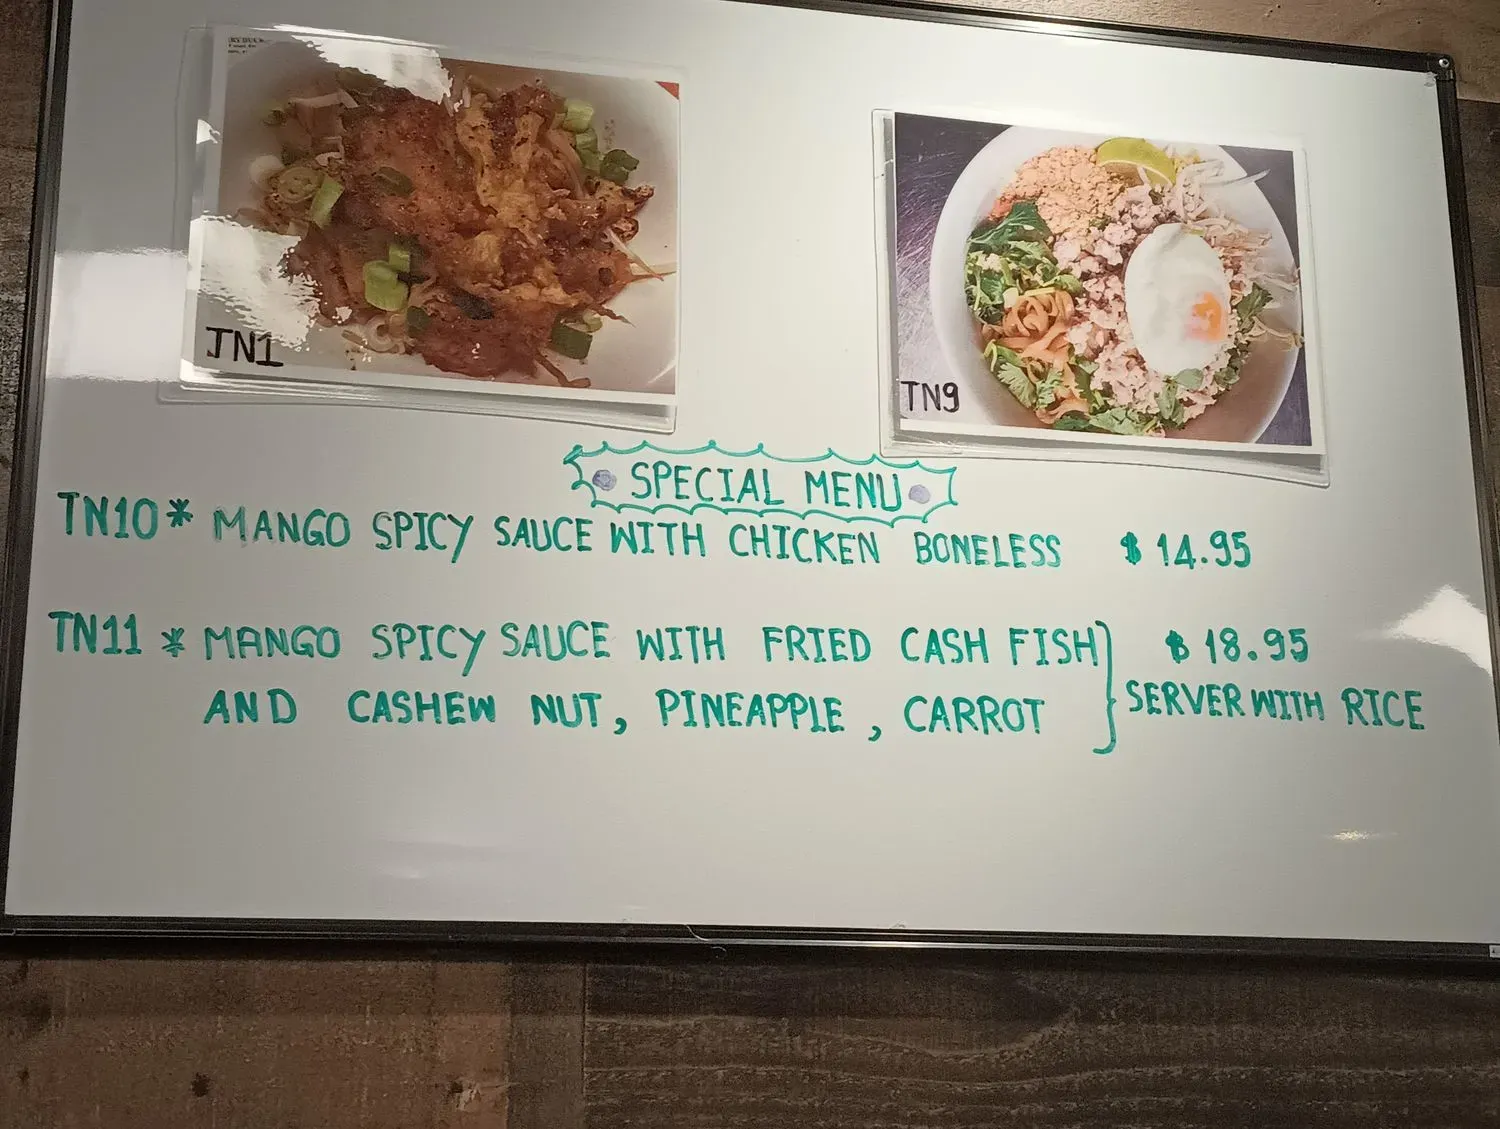 TN1
TN9
SPECIAL MENU
TN10* MANGO SPICY SAUCE WITH CHICKEN BONELESS $ 14.95
TN11 * MANGO SPICY SAUCE WITH FRIED CASH FISH } $ 18.95
AND CASHEW NUT, PINEAPPLE, CARROT SERVER WITH RICE